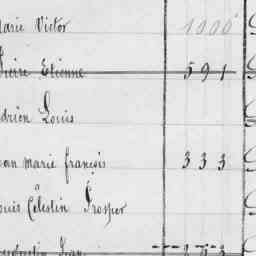 Marie Victor 1000
Pierre Etienne 591
Adrien Louis
Jean marie françois 333
à
Louis Célestin Prosper
Jean